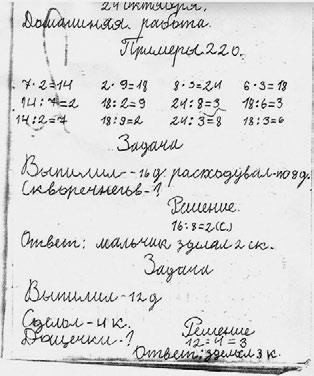 24 октября.
Домашняя работа.
Примеры 220.
7·2=14 2·9=18 8·3=24 6·3=18
14:7=2 18:2=9 24:8=3 18:6=3
14:2=7 18:9=2 24:3=8 18:3=6
Задача
Выпилил -16д. расходувал-по 8д.
Скворечнегов-?
Решение.
16:8=2(с)
Ответ: мальчик зделал 2 ск.
Задача
Выпилил-12д
Сделал-4к.
Дощечки-? Решение
12:4=3
Ответ: зделал 3 к.